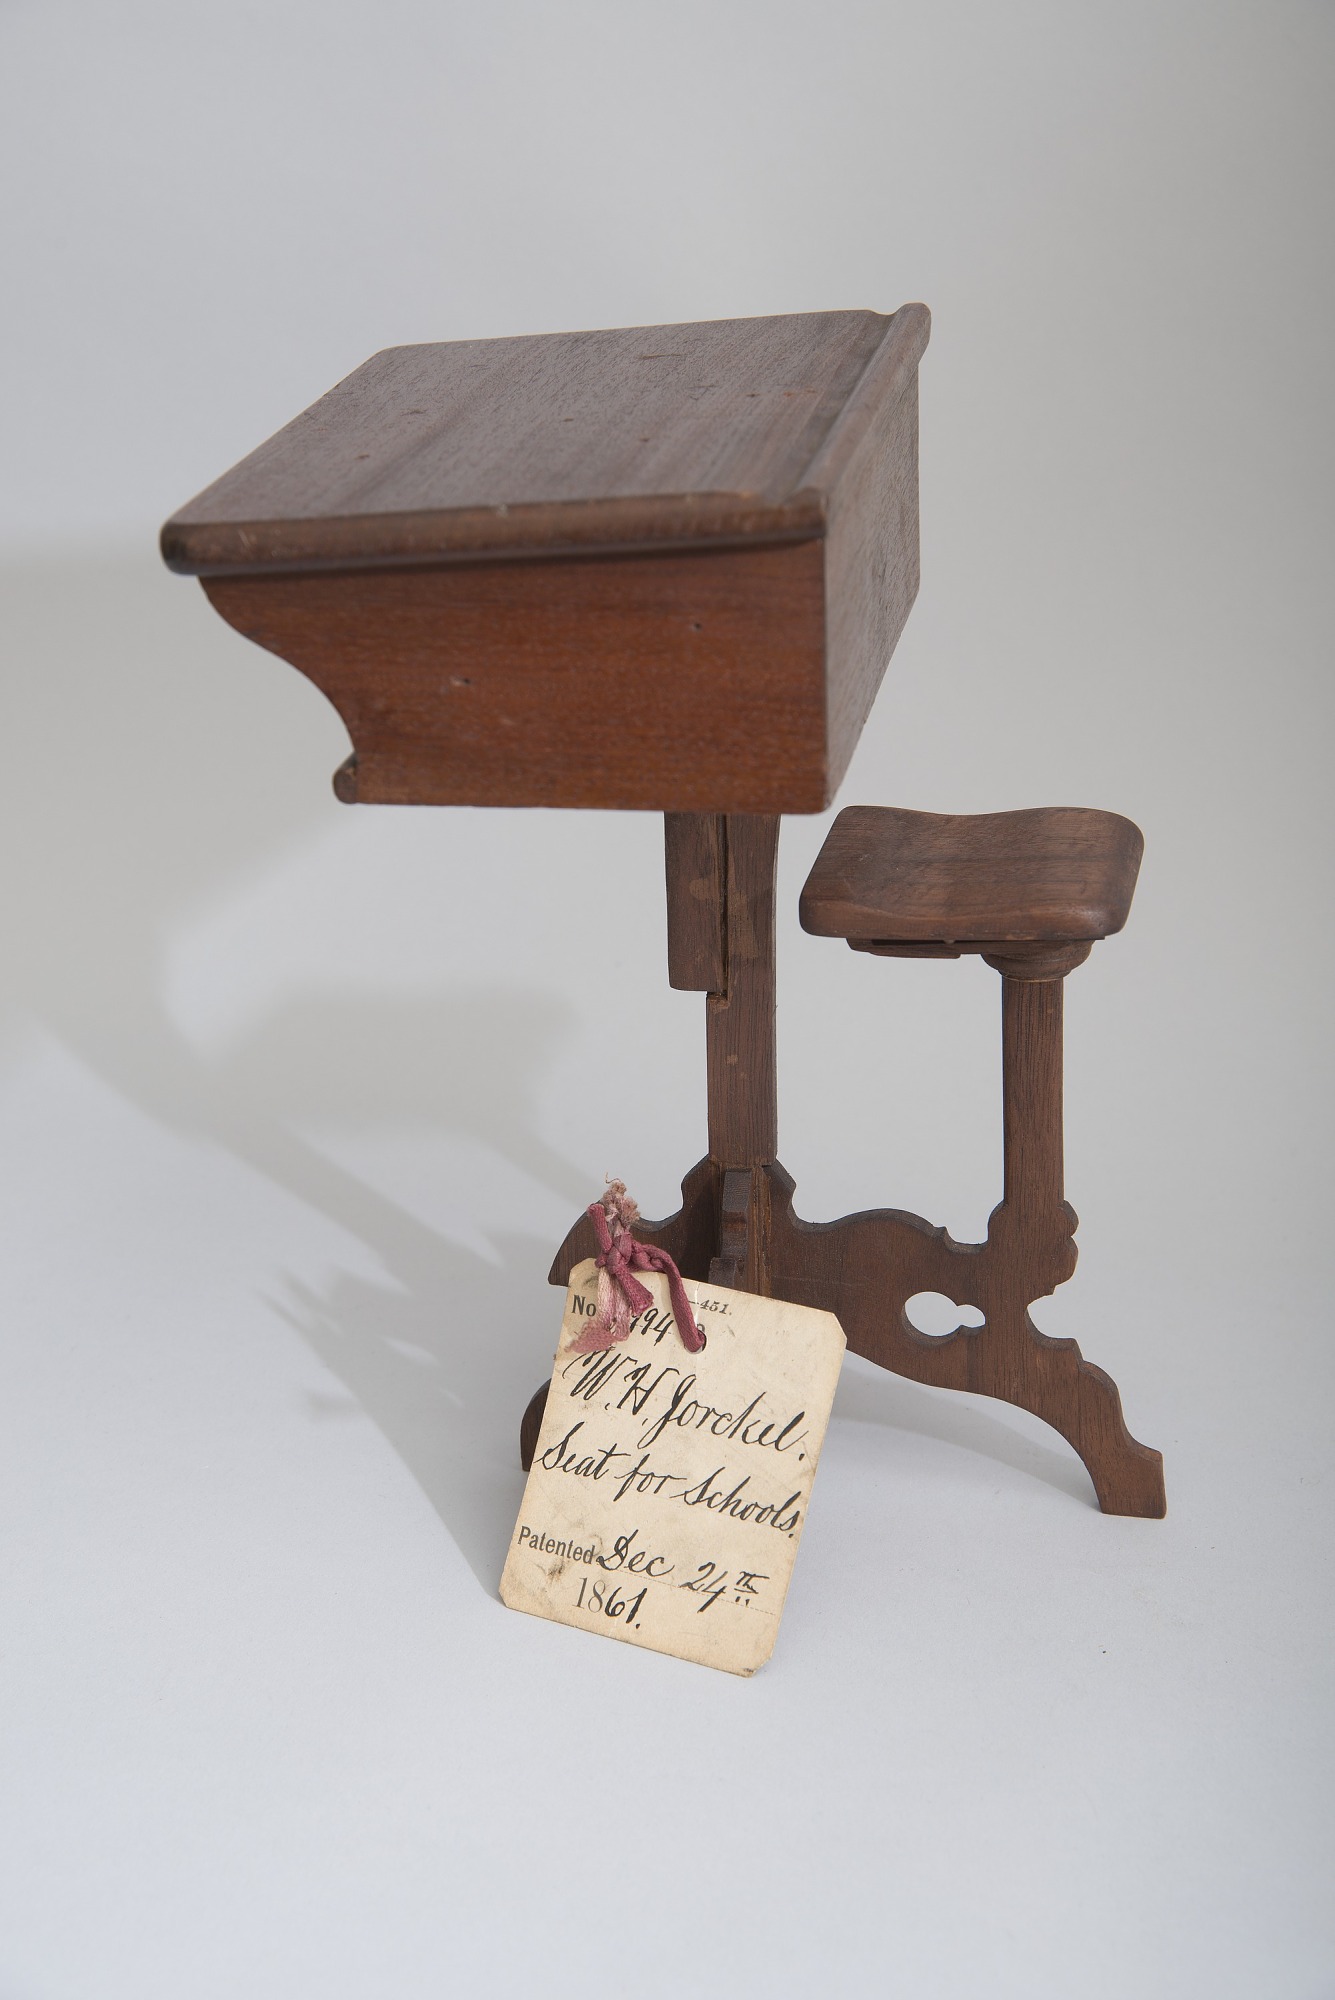 —451.
No
W. H. Jorckel.
Seat for Schools.
Patented Dec 24th
1861.